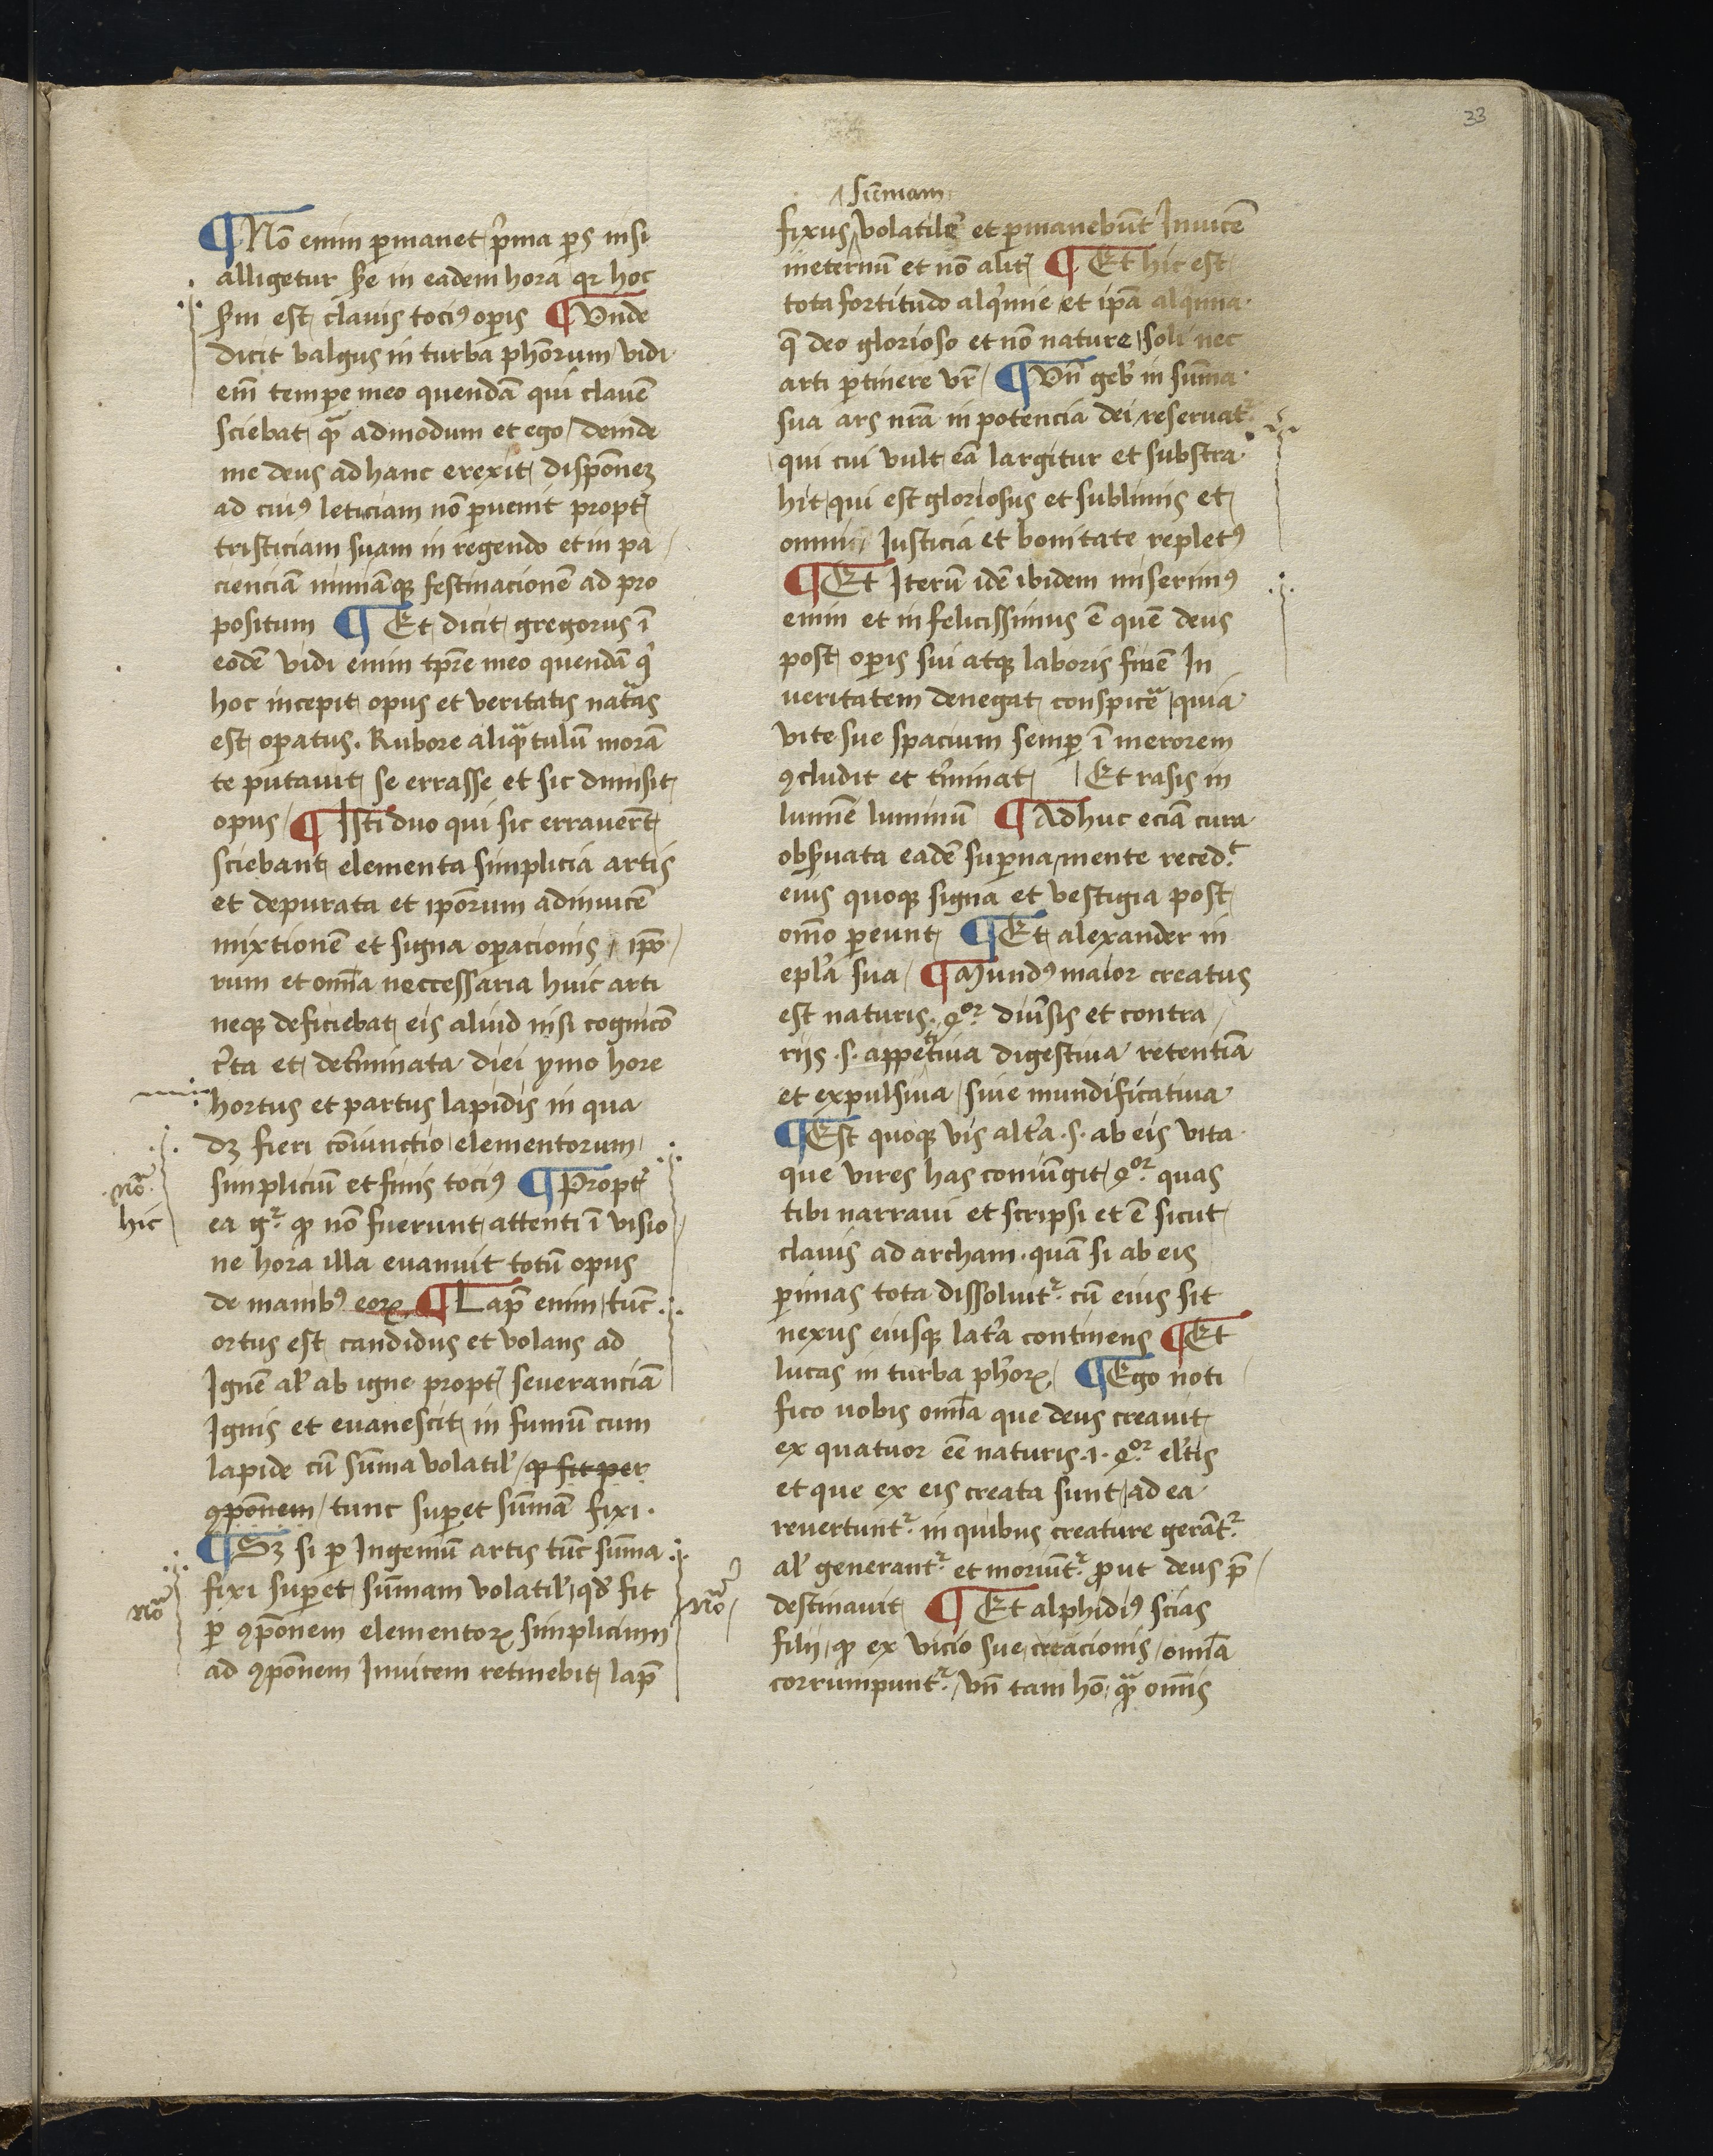 33
¶ Nō enim ꝑmanet p̄ma ꝑs nisi
alligetur s̄e in eadem hora qr hoc
s̄m est clauis tociꝰ oꝑis ¶ Vnde
dicit balgus in turba ph̄orum vidi
em̄ tempe meo quendā qui clauē
sciebat qͣ admodum et ego deinde
me deus ad hanc erexit dispōneȝ
ad cuiꝰ leticiam nō ꝑuenit propt̄
tristiciam suam in regendo et in pa
cienciā nimiāqꝫ festinacionē ad pro
positum ¶ Et dicit gregorus ī
eodē vidi enim tp̄re meo quendā qͥ
hoc incepit opus et veritatis natas
est oꝑatus. Rubore aliqͣtulū morā
te putauit se errasse et sic dimisit
opus ¶ Isti duo qui sic errauer̄t
sciebant elementa simplicia artis
et depurata et ip̄orum adinuicē
mixtionē et signa oꝑacionis ip̄o
rum et om̄ia neccessaria huic arti
neqꝫ deficiebat eis aliud nisi cognicō
c̄ta et det̄minata diei ymo hore
hortus et partus lapidis in qua
dꝫ fieri cōiunctio elementorum
simpliciū et finis tociꝰ ¶ Propt̄
ea gͬ ꝙ nō fuerunt attenti ī visio
ne hora illa euanuit totū opus
de manibꝰ eoꝝ ¶ Lap̄ enim tūc
ortus est candidus et volans ad
Ignē al̄ ab igne propt̄ seueranciā
Ignis et euanescit in fumū cum
lapide cū sūma volatil̄ ꝙ fit per
ꝯpōnem tunc suꝑet sūmā fixi.
¶ Sꝫ si ꝑ Ingeniū artis tūc sūma
fixi suꝑet sūmam volatil̄ qd̄ fit
ꝑ ꝯpōnem elementoꝝ simplicium
ad ꝯpōnem Inuicem retinebit lap̄
nōͣ
hic
nōͣ
nōͣ
sūmam
fixus volatil̄ et ꝑmanebūt Inuicē
ineternū et nō alit̄ ¶ Et hic est
tota fortitudo alqͥmie et ip̄a alqͥmia
q̄ deo glorioso et nō nature soli nec
arti ꝑtinere vr̄ ¶ Vn̄ geb̄ in sūma
sua ars nr̄a in potencia dei reseruatͬ
qui cui vult eā largitur et substra
hit qui est gloriosus et sublimis et
omni Iusticia et bonitate repletꝰ
¶ Et Iterū idē ibidem miserimꝰ
enim et infelicissimus ē quē deus
post oꝑis sui atqꝫ laboris finē In
veritatem denegat conspicēͣ quia
vite sue spacium semꝑ ī merorem
ꝯcludit et t̄minat Et rasis in
lumīe luminū ¶ Adhuc eciā cura
obs̄uata eadē suꝑna mente recedͭ
eius quoqꝫ signa et vestigia post
om̄o ꝑeunt ¶ Et alexander in
epl̄a sua ¶ Mundꝰ maior creatus
est naturis .4oͬ. diūsis et contra
riis .s. appetitiua digestiua retentīa
et expulsiua siue mundificatiua
¶ Est quoqꝫ vis alt̄a .s. ab eis vita
que vires has coniūgit 4oͬ quas
tibi narraui et scripsi et ē sicut
clauis ad archam. quā si ab eis
ꝑimas tota dissoluitͬ cū eius sit
nexus eiusqꝫ lat̄a continens ¶ Et
lucas in turba ph̄oꝝ ¶ Ego noti
fico uobis om̄ia que deus creauit
ex quatuor eē naturis .i. 4oͬ el̄tis
et que ex eis creata sunt ad ea
reuertuntͬ in quibus creature gerātͬ
al̄ generantͬ et moriūtͬ ꝓut deus p̄
destinauit ¶ Et alphidiꝰ scias
filij ꝙ ex vicio sue creacionis om̄ia
corrumpuntͬ vn̄ tam hō qͣ om̄is